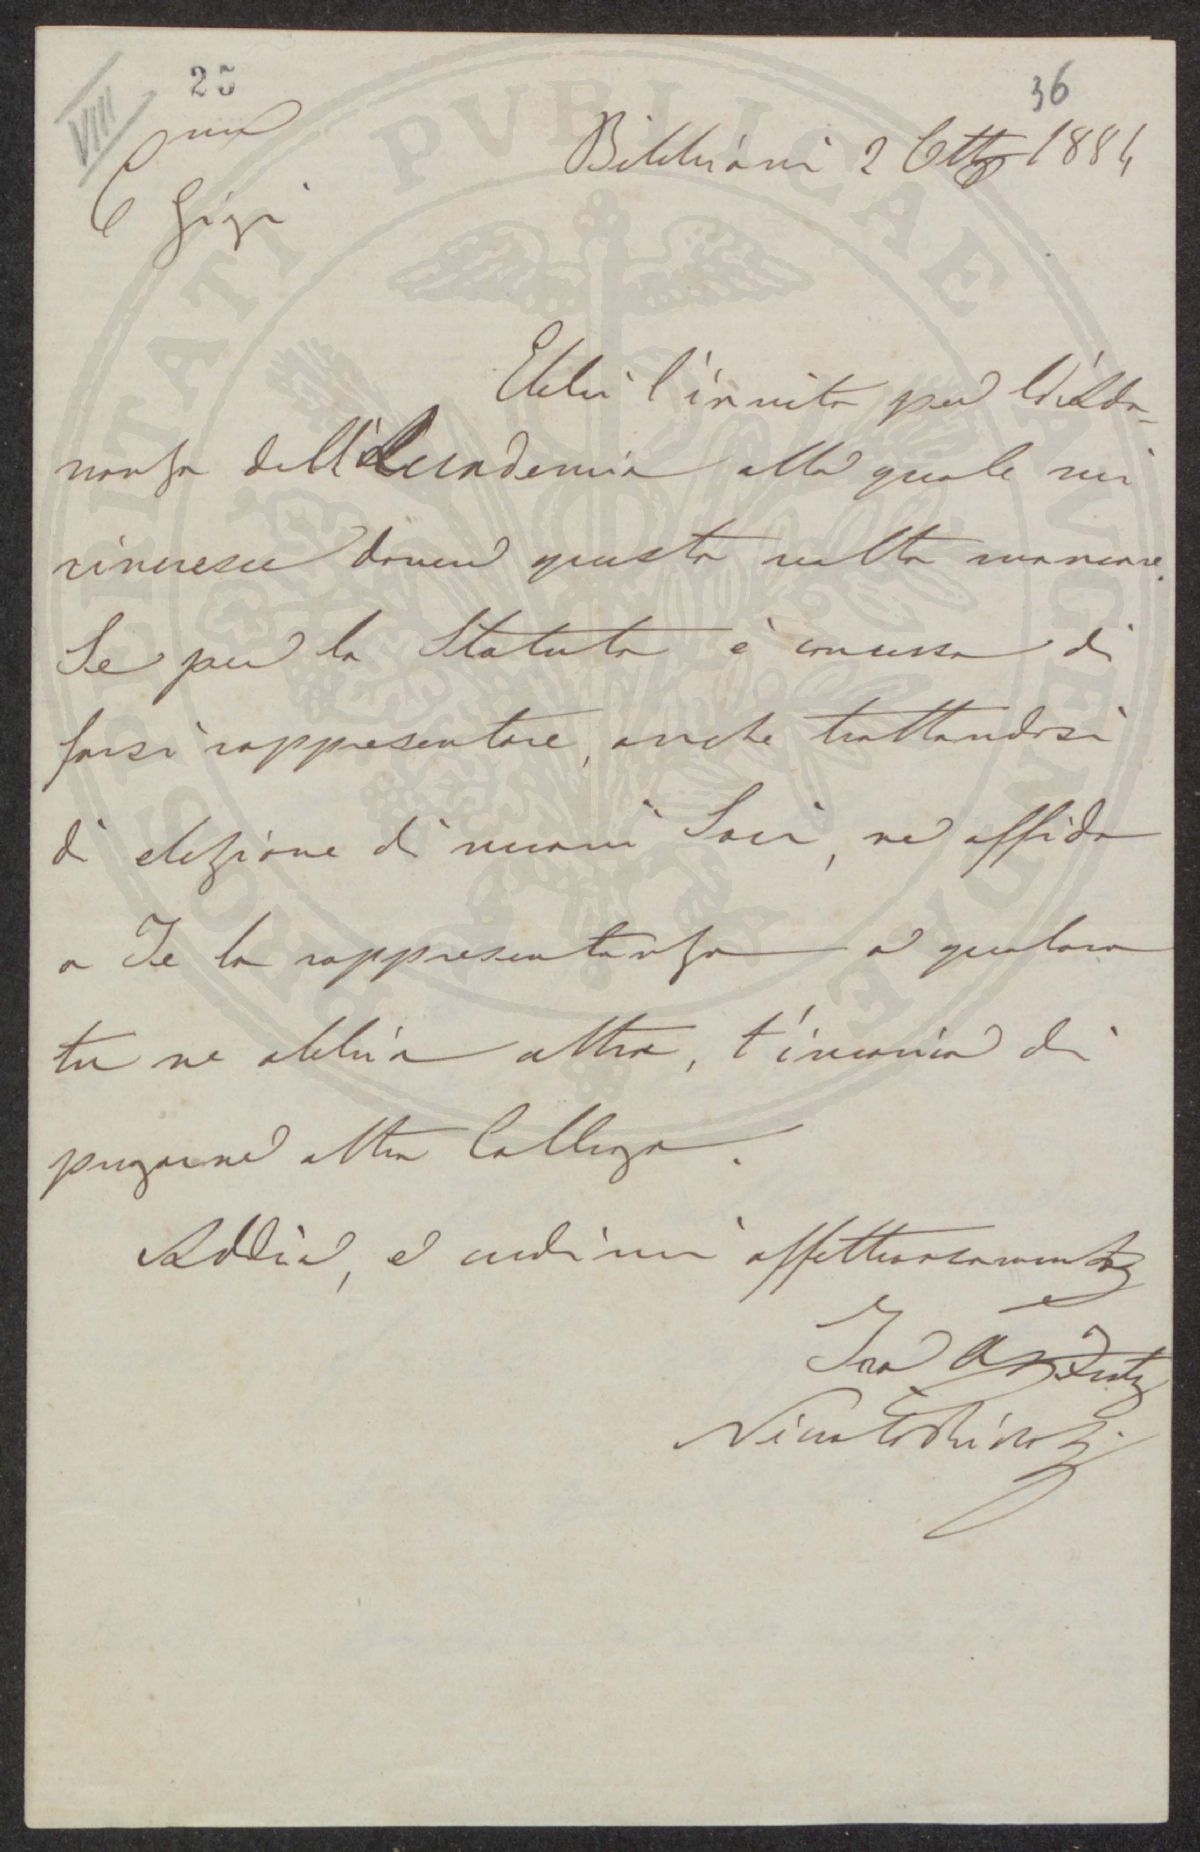 VIII
25
36
Bibbiani 2 Ottb 1884
C mo
Gigi
Ebbi l'invito per l'Adu-
nanza dell'Accademia alla quale mi
rincresce dover questa volta mancare.
Se per lo Statuto è concesso di
farsi rappresentare, anche trattandosi
di elezione di nuovi Soci, ne affido
a Te la rappresentanza o qualora
tu ne abbia altra, t'incarico di
pregarne altro Collega.
Addio, e credimi affettuosamente
Tuo
Niccolò Ridolfi
PROSPERITATI PVBLICAE AVGENDAE